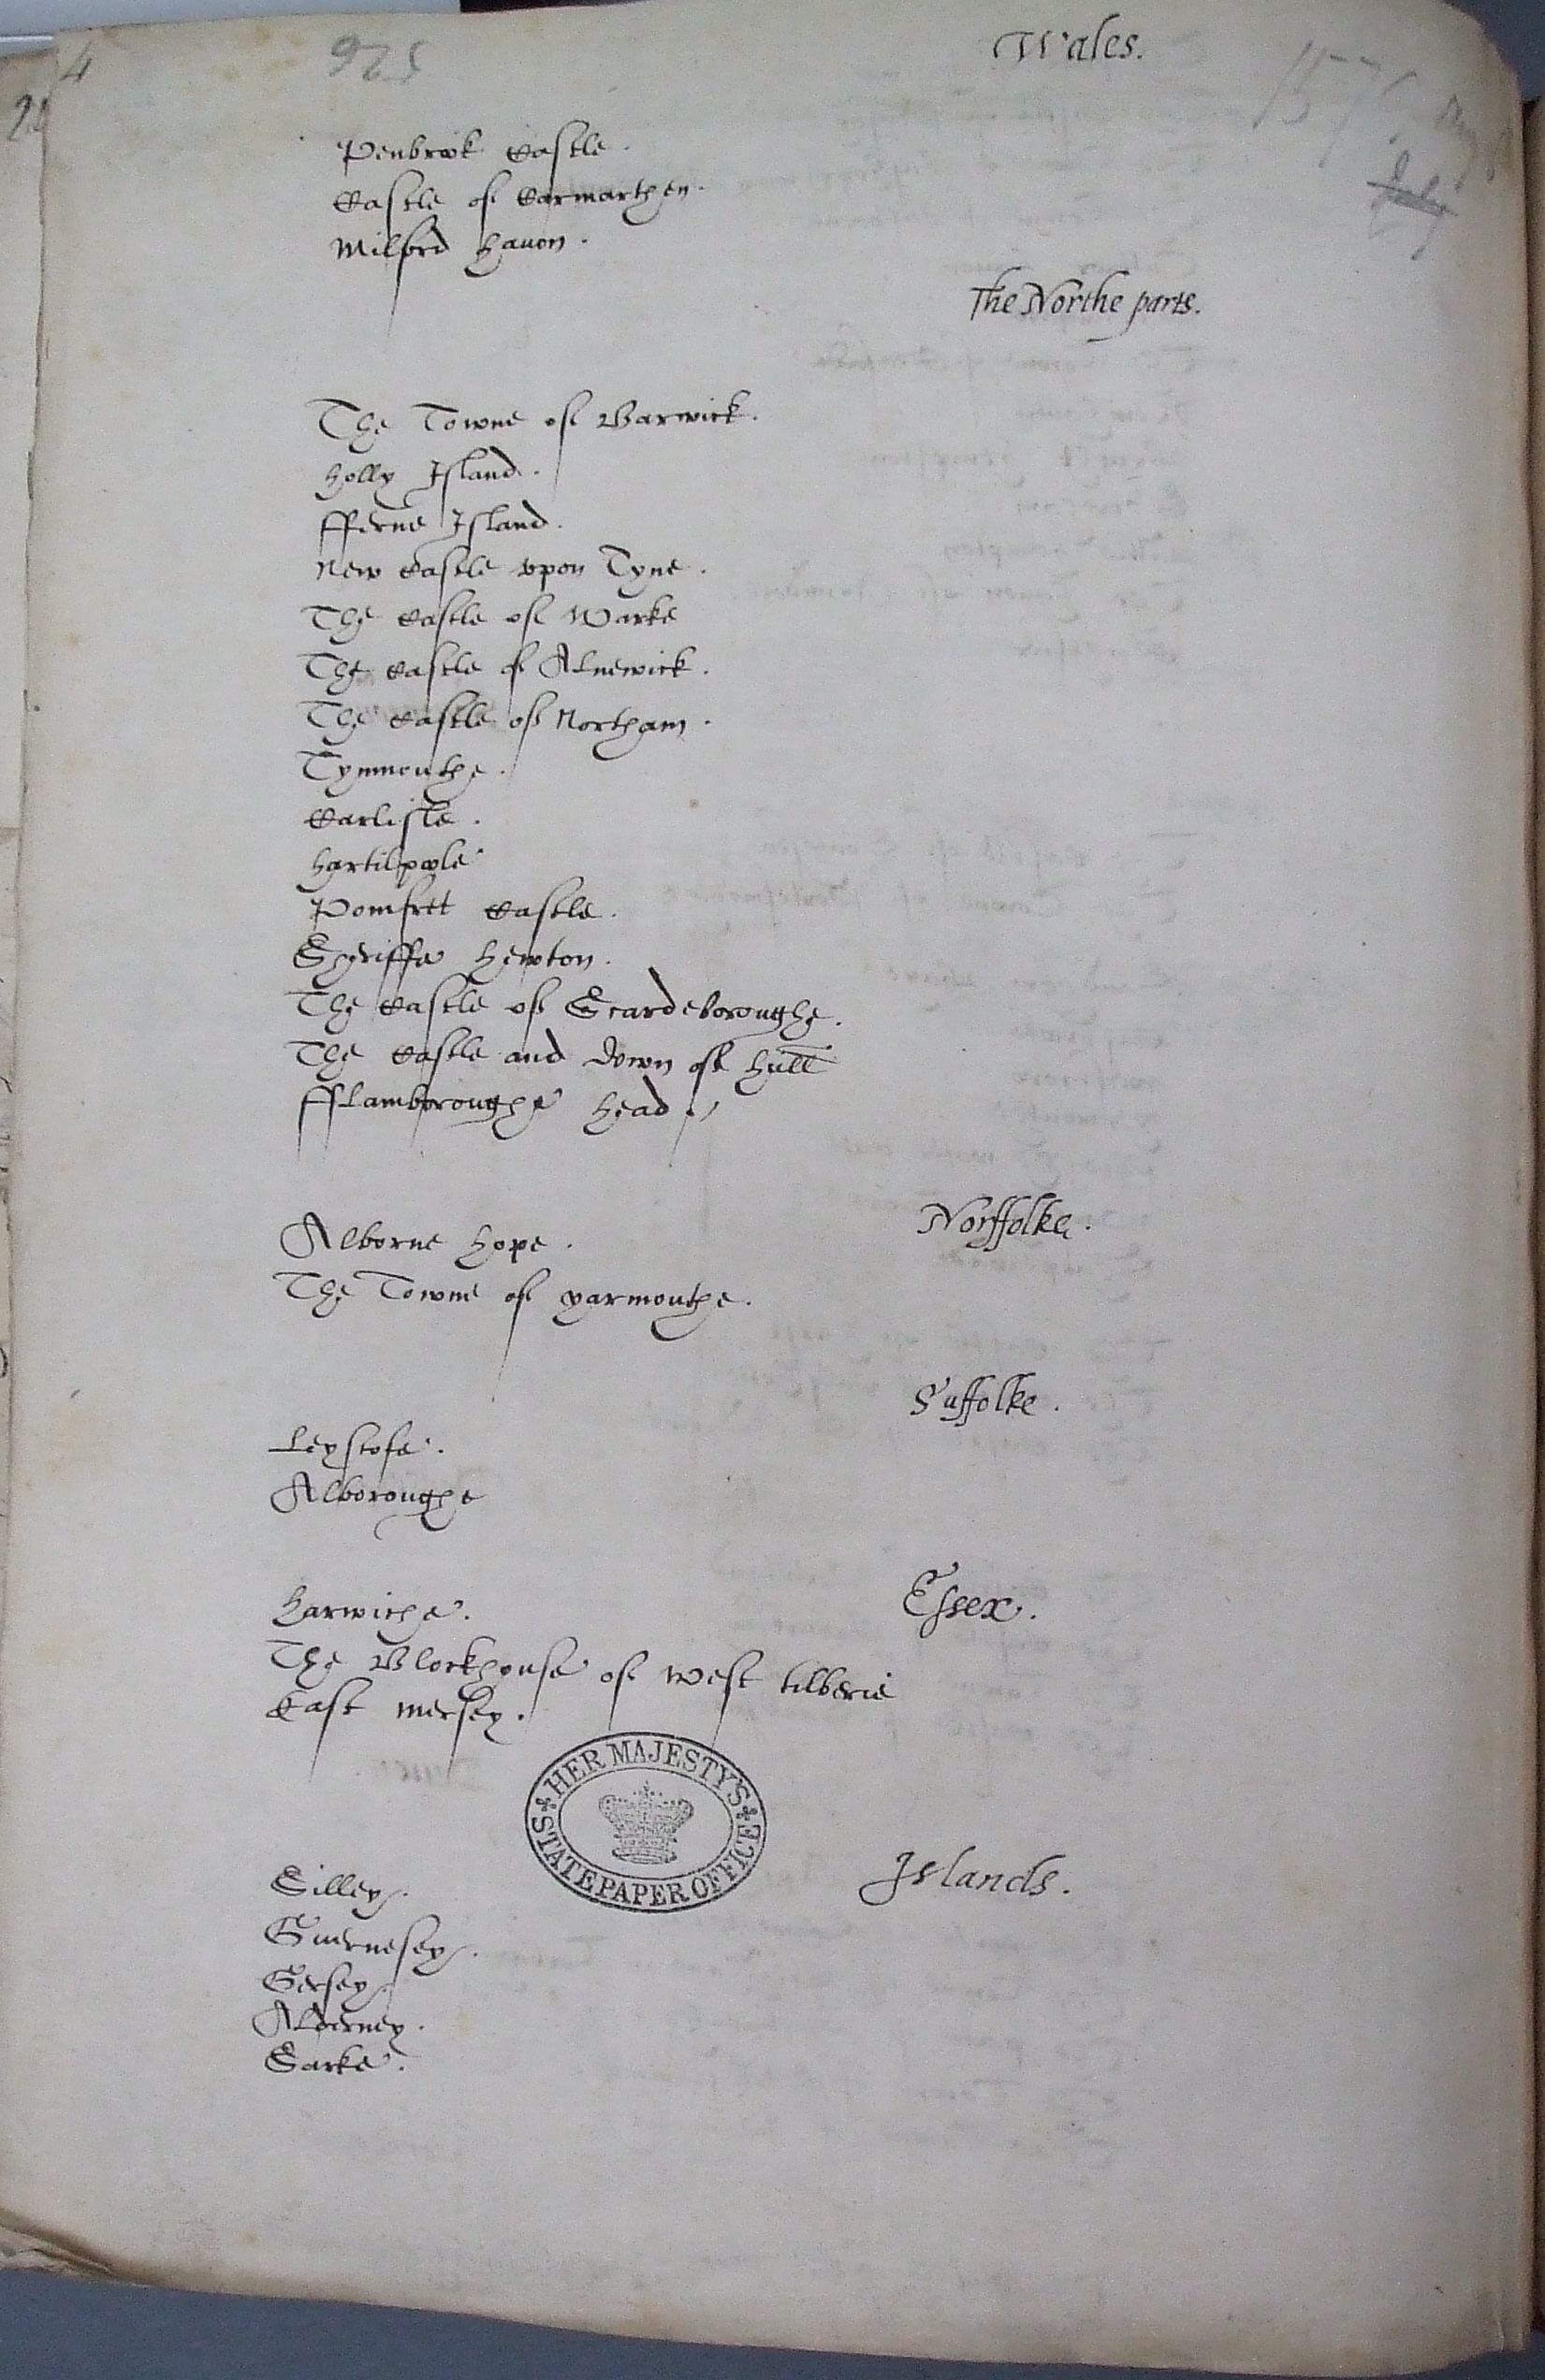 Wales.
Penbrook Castle.
Castle of Carmarthen.
Milford Hauon.
The Northe parts.
The Towne of Barwick.
Holly Island.
fferne Island.
New Castle vpon Tyne.
The Castle of Warke
The Castle of Alnewick.
The Castle of Northam.
Tynmouthe.
Carlisle.
Hartilpoole
Pomfrett Castle.
Sheriffe Hewton.
The Castle of Scardeboroughe.
The Castle and Town of Hull
fflamboroughe Head.
Norffolke.
Alborne Hope.
The Towne of yarmouthe.
Suffolke.
Leystofe.
Alboroughe
Essex.
Harwiche.
The Blockhouse of west tilberie
East mersey.
HER MAJESTY'S
STATE PAPER OFFICE
Islands.
Silley.
Guernesey.
Gersey.
Alderney.
Sarke.